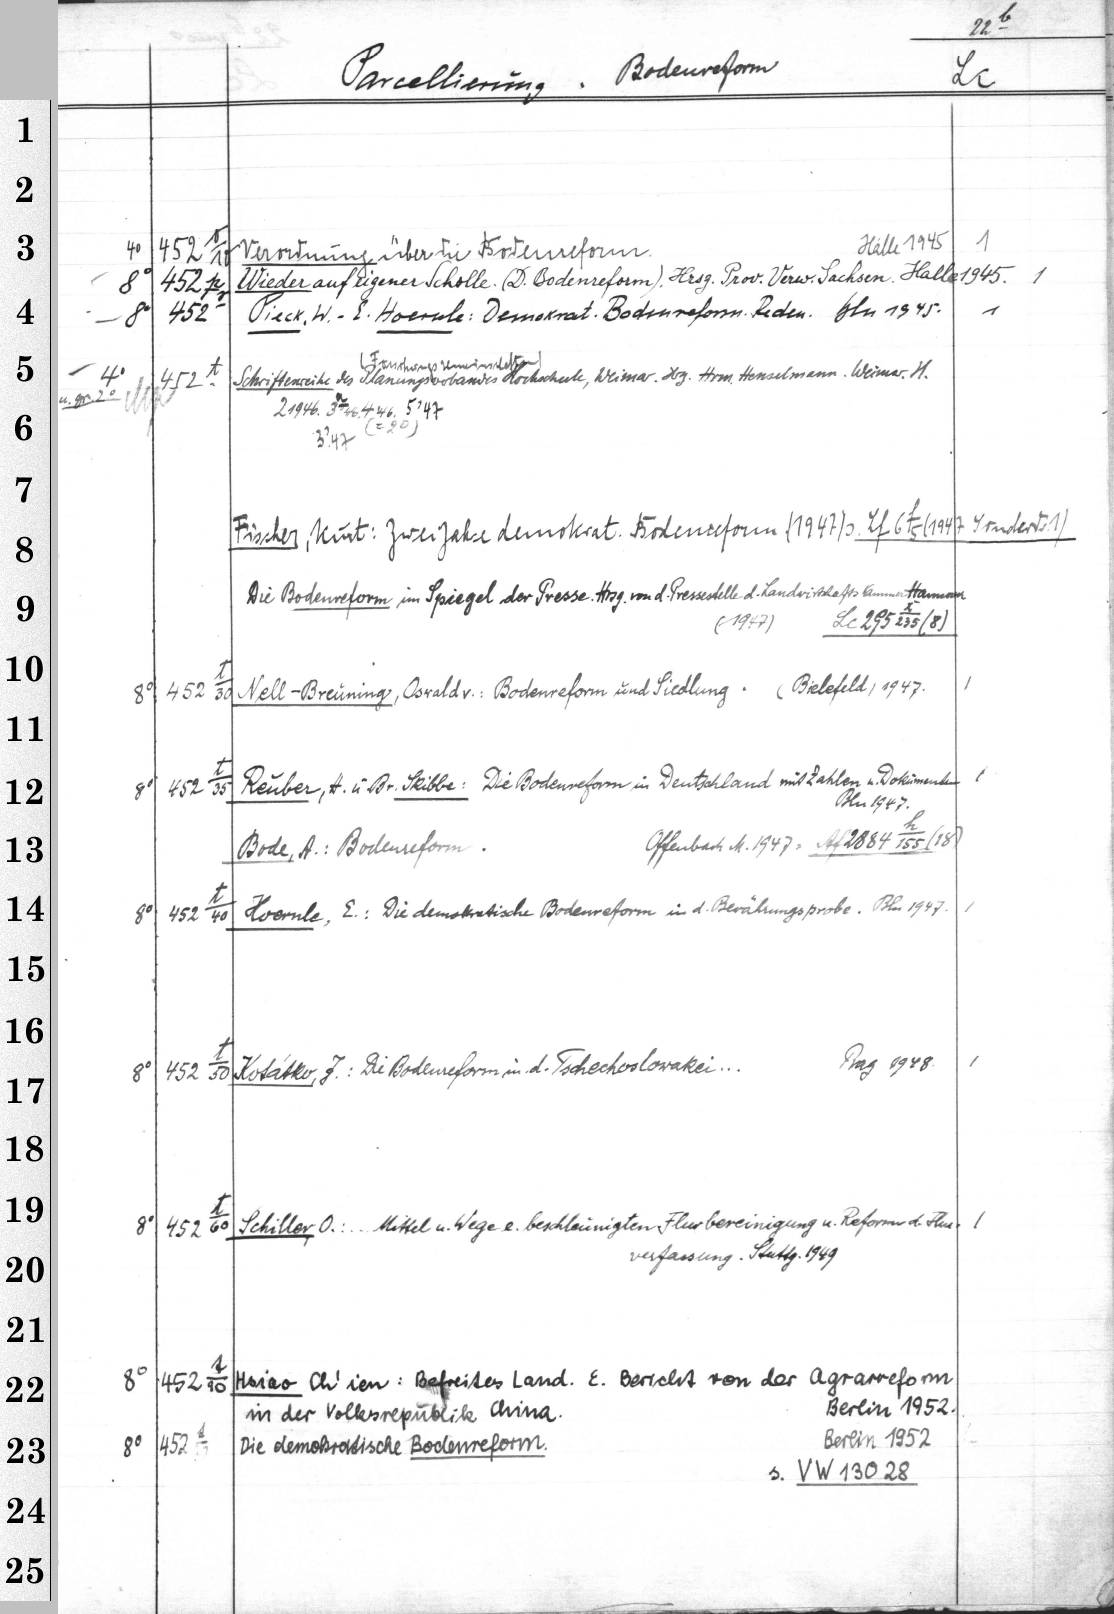 22 b
Parcellierung . Bodenreform Lc
1
2
3 4° 452 Verordnung über die Bodenreform. Halle 1945 1
8° 452 Wieder auf eigener Scholle. (D. Bodenreform). Hrsg. Prov. Verw. Sachsen. Halle 1945. 1
4 8° 452 Pieck, W. - E. Hoernle: Demokrat. Bodenreform. Reden. Bln 1945. 1
(Forschungsgemeinschaften)
5 4° 452 t Schriftenreihe des Planungsverbandes Hochschule, Weimar. Hrg. Hrm. Henselmann. Weimar. H.
u. gr. 2° 2 1946. 4 46. 5 '47
6 (= 2°)
3'.47
7
8 Fischer, Kurt: Zwei Jahre demokrat. Bodenreform (1947) s. Lf 6 t/5 (1947 Sonderh 1)
9 Die Bodenreform im Spiegel der Presse. Hrsg. von d. Pressestelle d. Landwirtschaftskammer Hannover
(1947) Lc 295 x/235 (8)
10 8° 452 t/30 Nell-Breuning, Oswald v.: Bodenreform und Siedlung. (Bielefeld) 1947. 1
11
12 8° 452 t/35 Reuber, H. u. Br. Skibbe: Die Bodenreform in Deutschland mit Zahlen u. Dokumenten 1
Bln 1947.
13 Bode, A.: Bodenreform. Offenbach M. 1947 = Af 2884 h/155 (18)
14 8° 452 t/40 Hoernle, E.: Die demokratische Bodenreform in d. Bewährungsprobe. Bln 1947. 1
15
16
17 8° 452 t/50 Kotátko, J.: Die Bodenreform in d. Tschechoslowakei... Prag 1948. 1
18
19 8° 452 t/60 Schiller, O.: ... Mittel u. Wege e. beschleunigten Flurbereinigung u. Reform d. Flur- 1
20 verfassung. Stuttg. 1949
21
22 8° 452 t/90 Hsiao Ch'ien: Befreites Land. E. Bericht von der Agrarreform
in der Volksrepublik China. Berlin 1952.
23 8° 452 Die demokratische Bodenreform. Berlin 1952
s. VW 130 28
24
25